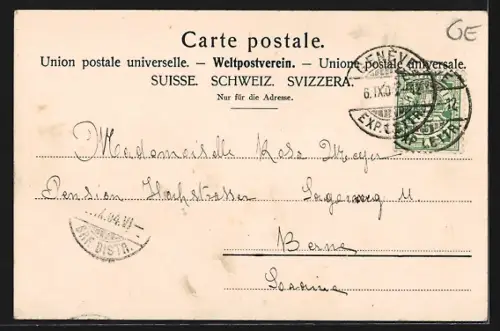 GE
Carte postale.
Union postale universelle. — Weltpostverein. — Unione postale universale.
SUISSE. SCHWEIZ. SVIZZERA.
Nur für die Adresse.
GENÈVE
6.IX.04
EXP. LETTR.
EXP. LETTR.
Mademoiselle Rosa Meyer
Pension Hochstrasser
Berne
IX.04.VI
BRF. DISTR.